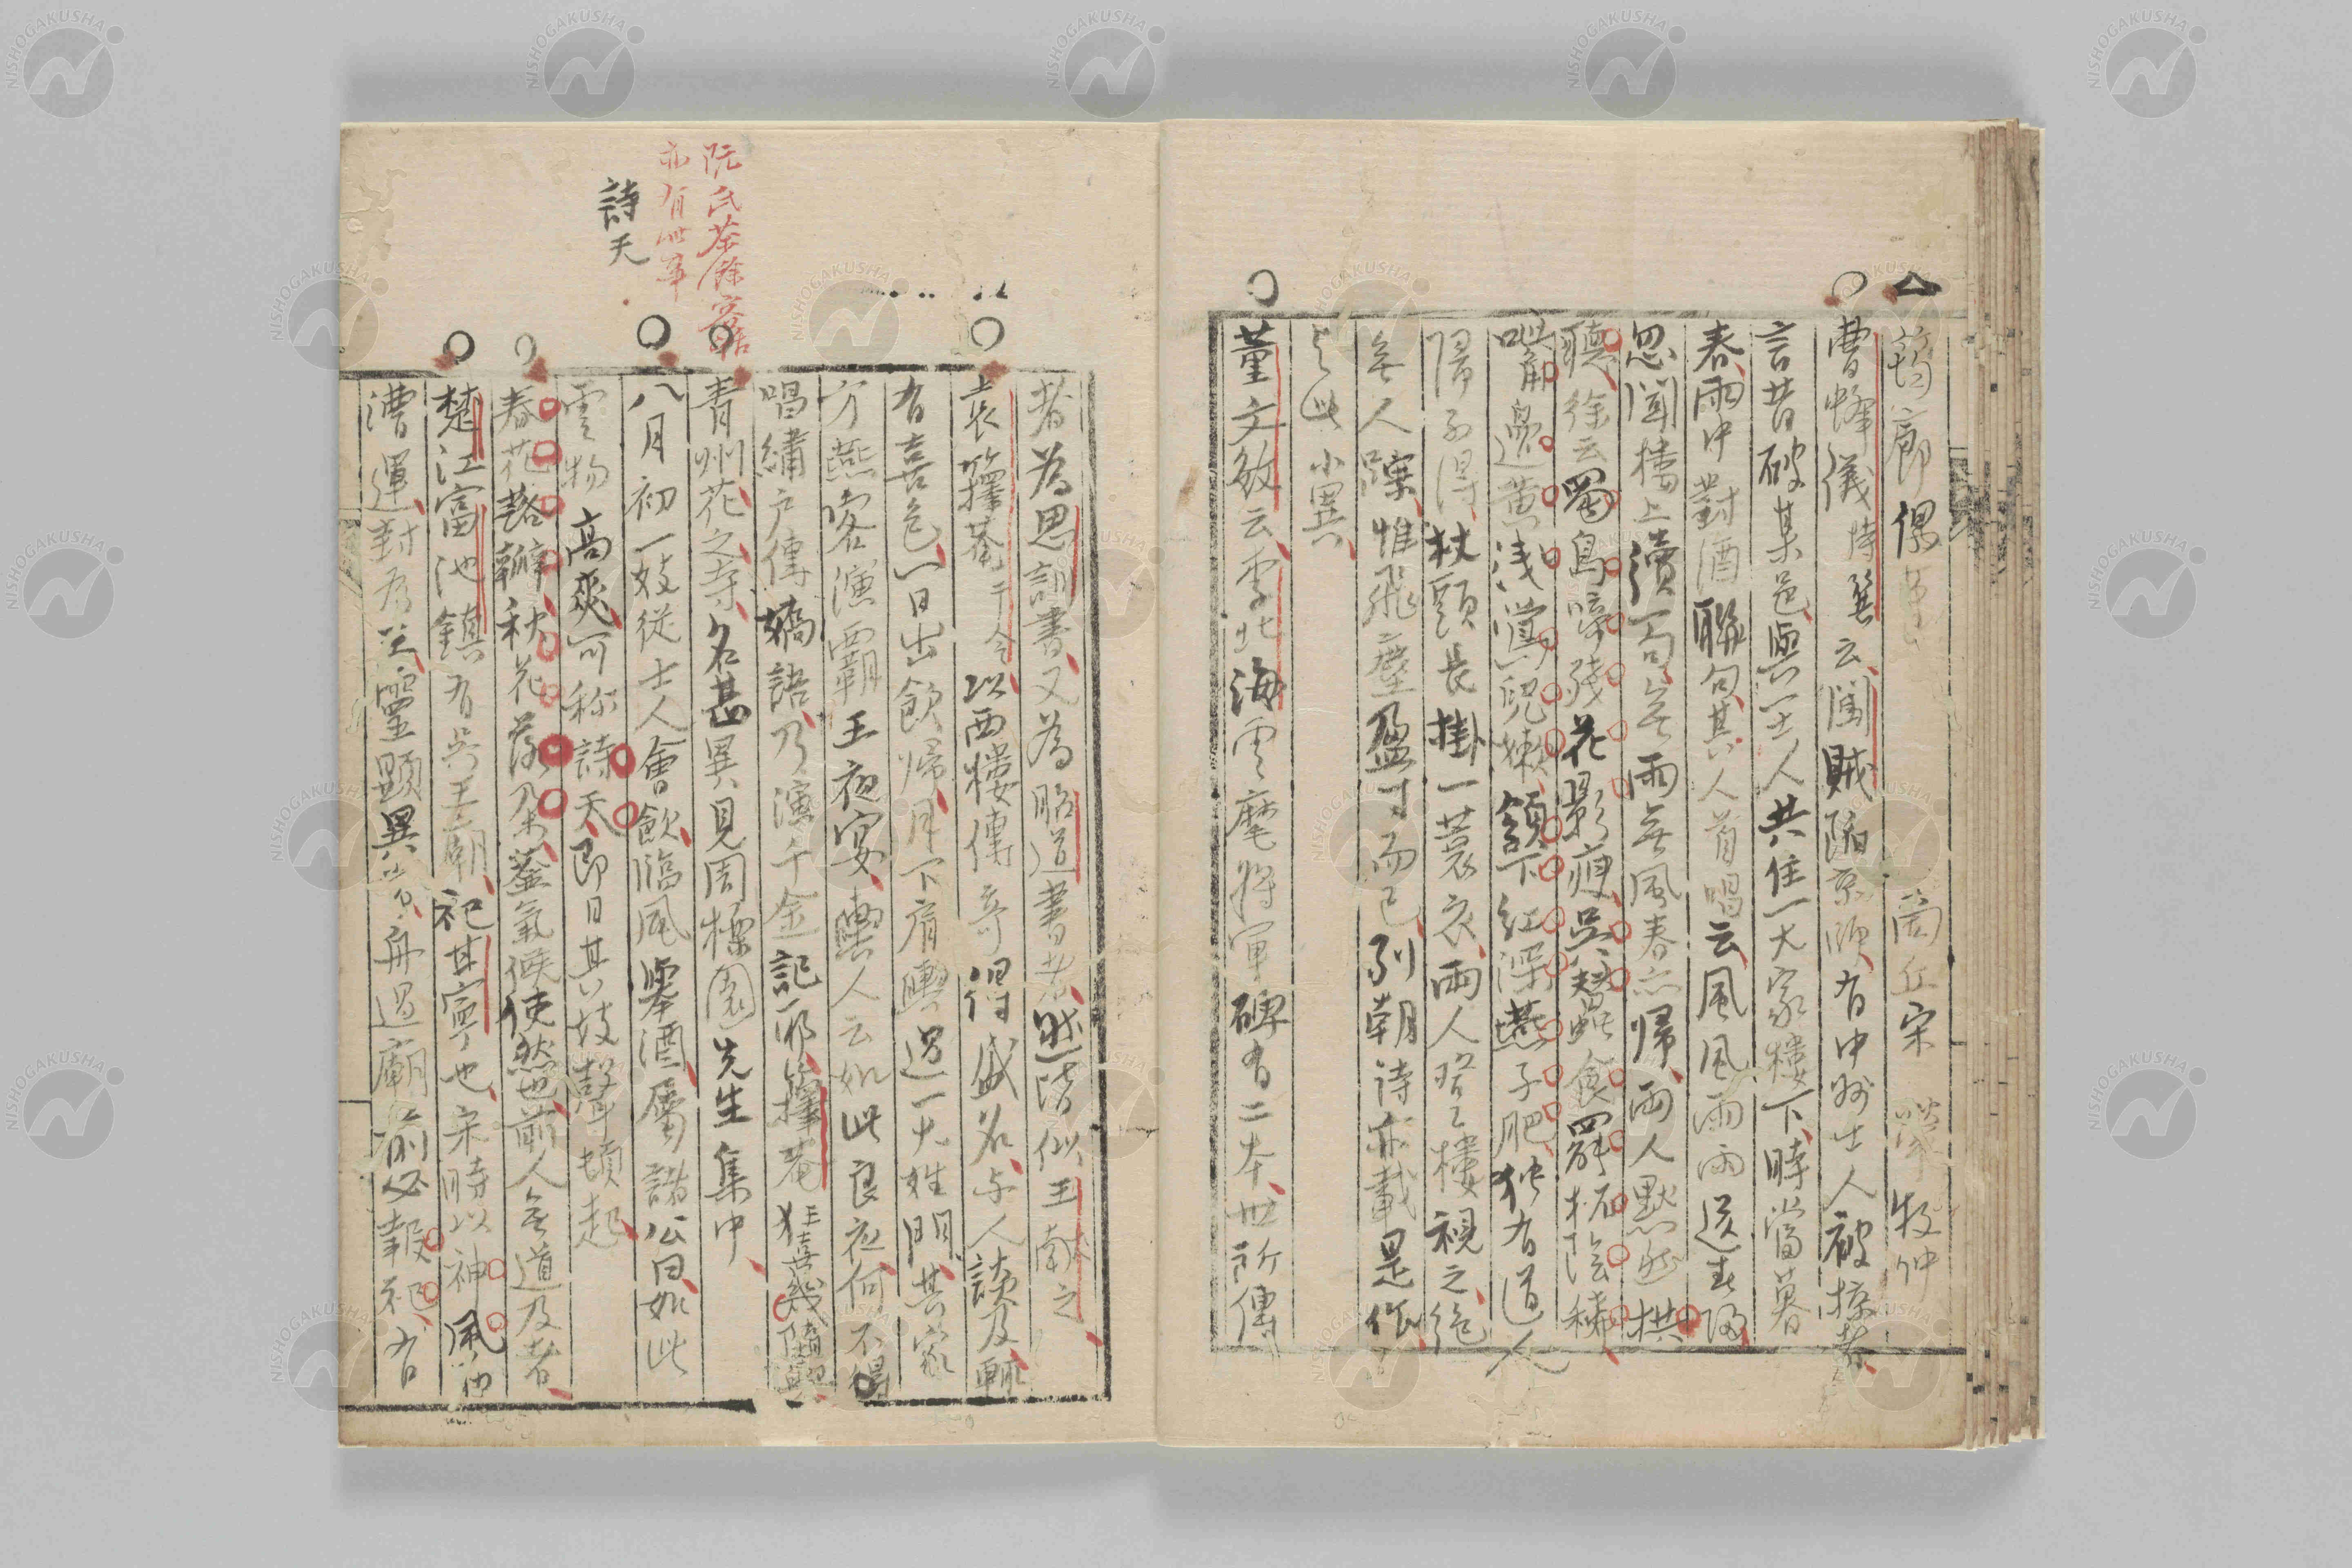 筠廊偶筆 商丘宋犖牧仲
曹峰儀時巽云闖賊陷京師有中州士人被掠
言昔破某邑與一士人共住一大家樓下時當暮
春雨中對酒聯句其人首唱云風風雨雨送春歸
忽聞樓上續句無雨無風春亦歸兩人默然拱
聽徐云蜀鳥啼殘花影瘦吳蠶食罷柘陰稀
嘴邊黃淺鶯兒嫩頷下紅深燕子肥獨有道人
歸不得杖頭長掛一蓑衣兩人登樓視之絕
無人蹤惟飛塵盈寸而已列朝詩亦載是作
與此小異
董文敏云李北海雲麾將軍碑有二本世所傳
者為思訓書又為昭道書者然皆似王南之
袁籜菴于令以西樓傳奇得盛名與人談及輒
有喜色一日出飲歸月下肩輿過一大姓門其家
方燕客演霸王夜宴輿人云如此良夜何不
唱繡戶傳嬌語乃演千金記耶籜菴狂喜幾墮輿
青州花之寺名甚異見周櫟園先生集中
八月初一妓從士人會飲臨風舉酒屬諸公曰如此
雲物高爽可称詩天即日其妓聲頓起
春花落瓣秋花落朵蓋氣候使然也前人無道及者
楚江富池鎮有吳王廟祀甘寧也宋時以神風助
漕運封為王靈顯異常舟過廟前必報祀有
阮氏茶餘客話
亦有此事
詩天
NISHOGAKUSHA